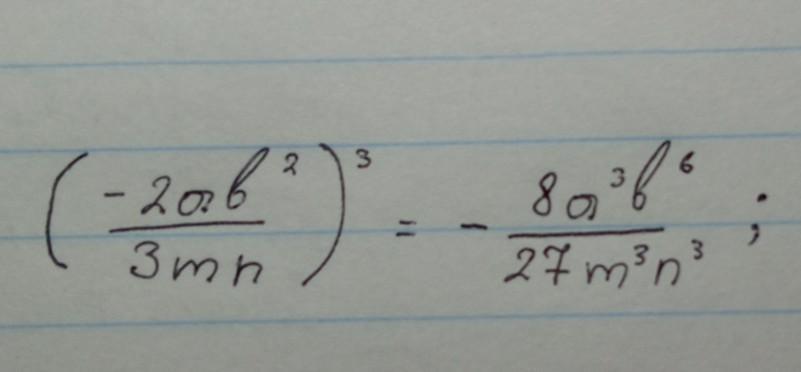 (-2ab²/3mn)³ = - 8a³b⁶/27m³n³ ;